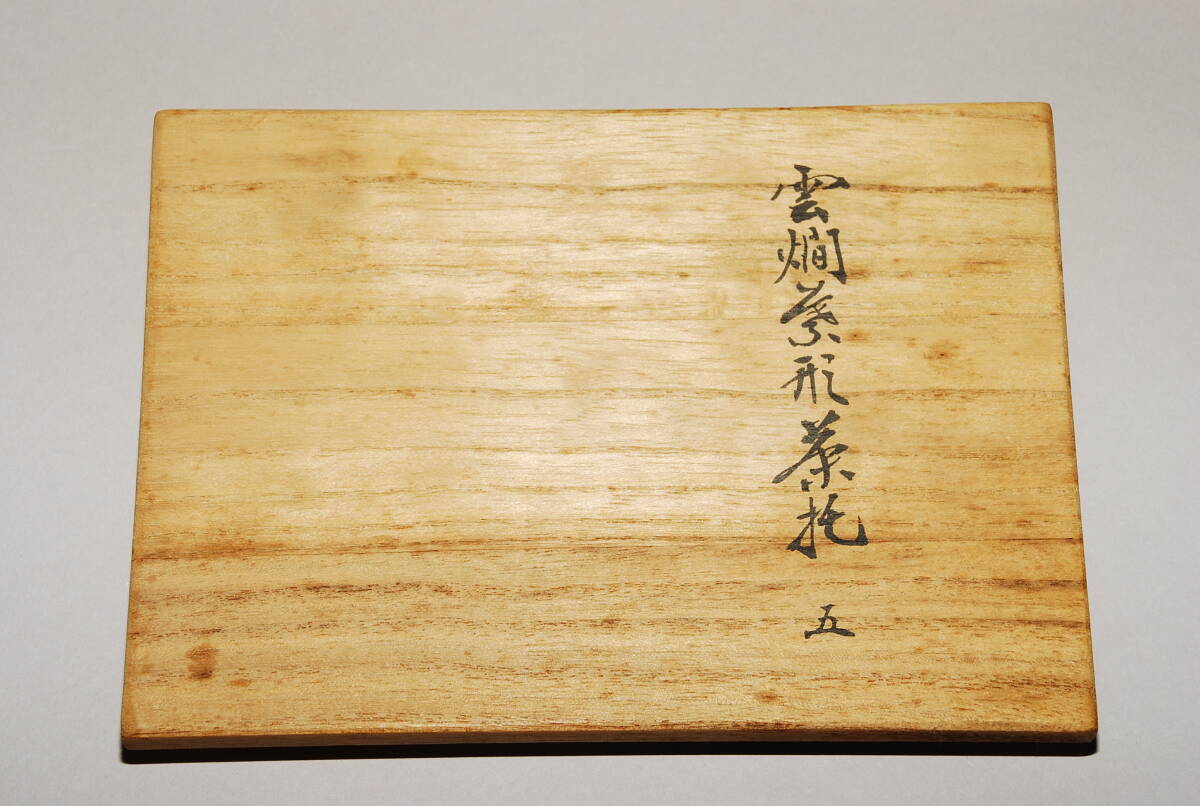 雲燗葉形茶托 五